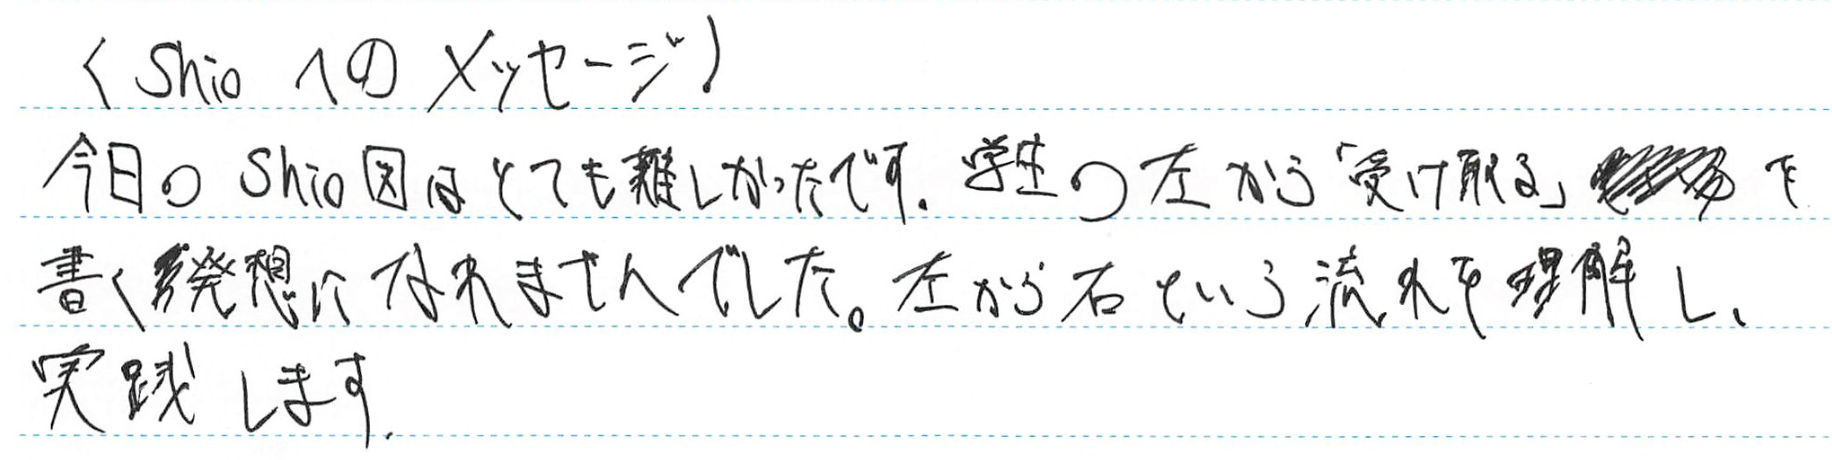 〈Shio への メッセージ〉
今日の Shio図はとても難しかったです。学生の左から「受け取る」を
書く発想になれませんでした。左から右という流れを理解し、
実践します。